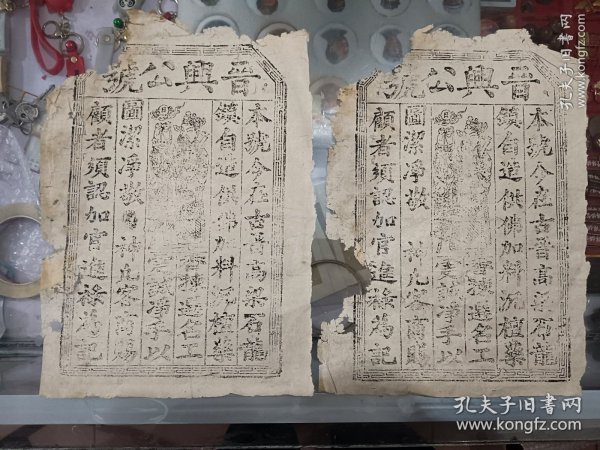 晋興公號
本號今在古晉高梁石龍
鎮自造供佛加料沉檀藥
香揀選名工
虔誠净手以
圖潔净敬 神凡客商賜
顧者須認加官進祿為記
晋興公號
本號今在古晉高梁石龍
鎮自造供佛加料沉檀藥
香揀選名工
虔誠净手以
圖潔净敬 神凡客商賜
顧者須認加官進祿為記
孔夫子旧书网
www.kongfz.com
孔夫子旧书网
www.kongfz.com